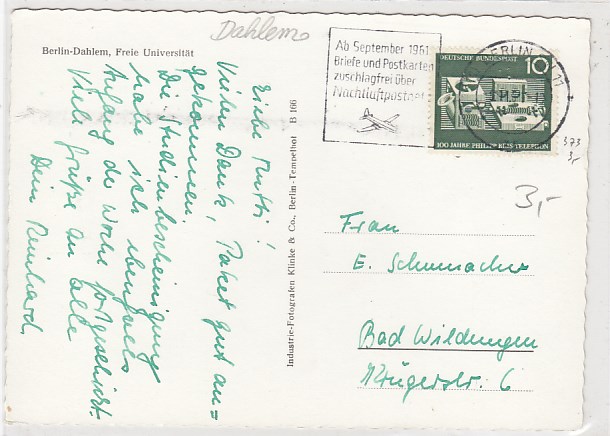 Dahlem
Berlin-Dahlem, Freie Universität
Liebe Mutti!
Vielen Dank, Paket gut an=
gekommen.
Die Studienbescheinigung
habe ich ebenfalls
Anfang der Woche fortgeschickt.
Viele Grüße an alle
Dein Reinhard.
Industrie-Fotografen Klinke & Co., Berlin-Tempelhof B 166
Ab September 1961
Briefe und Postkarten
zuschlagfrei über
Nachtluftpostnetz
BERLIN
DEUTSCHE BUNDESPOST 10
100 JAHRE PHILIPP REIS-TELEFON
373
3,-
3,-
Frau
E. Schumacher
Bad Wildungen
Krügerstr. 6